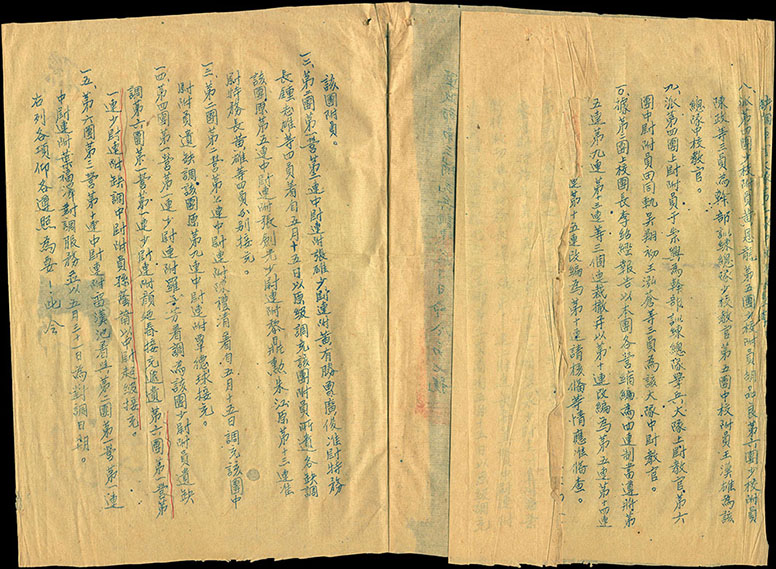 八、派第四團少校附員黃恩龍第五團少校附員胡品良第六團少校附員
陳政等三員為幹部訓練總隊少校教官第五團中校附員王漢雄為該
總隊中校教官。
九、派第四團上尉附員于榮興為幹部訓練總隊學兵大隊上尉教官第六
團中尉附員田同軌吳翔初王泓倉等三員為該大隊中尉教官。
一〇、據第三團上校團長李紹經報告以本團各營縮編為四連制書遵將第
五連第九連第三連等三個連裁撤并以第十連改編為第五連第十四連
第十五連改編為第十連請核備等情應准備查。
該團附員。
一二、第三團第一營第二連中尉連附張雄少尉連附黃有勝曹廣俊准尉特務
長鍾志雄等四員着自五月十五日以原級調充該團附員所遺各缺調
該團原第五連中尉連附張劍光少尉連附黎鼎勳朱治原第十三連准
尉特務長黃雄等四員分別接充。
一三、第三團第一營第七連中尉連附陳禮清着自五月十五日調充該團中
尉附員遺缺調該團原第九連中尉連附覃德球接充。
一四、第四團第一營第一連少尉連附羅子芳着調為該團少尉附員遺缺
調第六團第一營第一連少尉連附顏延春接充遞遺第六團第一營第
一連少尉連附缺調中尉附員孫蔭蘭以中尉超級接充。
一五、第六團第三營第十連中尉連附雷漢池着與第二團第一營第一連
中尉連附葉福澤對調服務並以五月三十一日為對調日期。
右列各項仰各遵照為要！此令